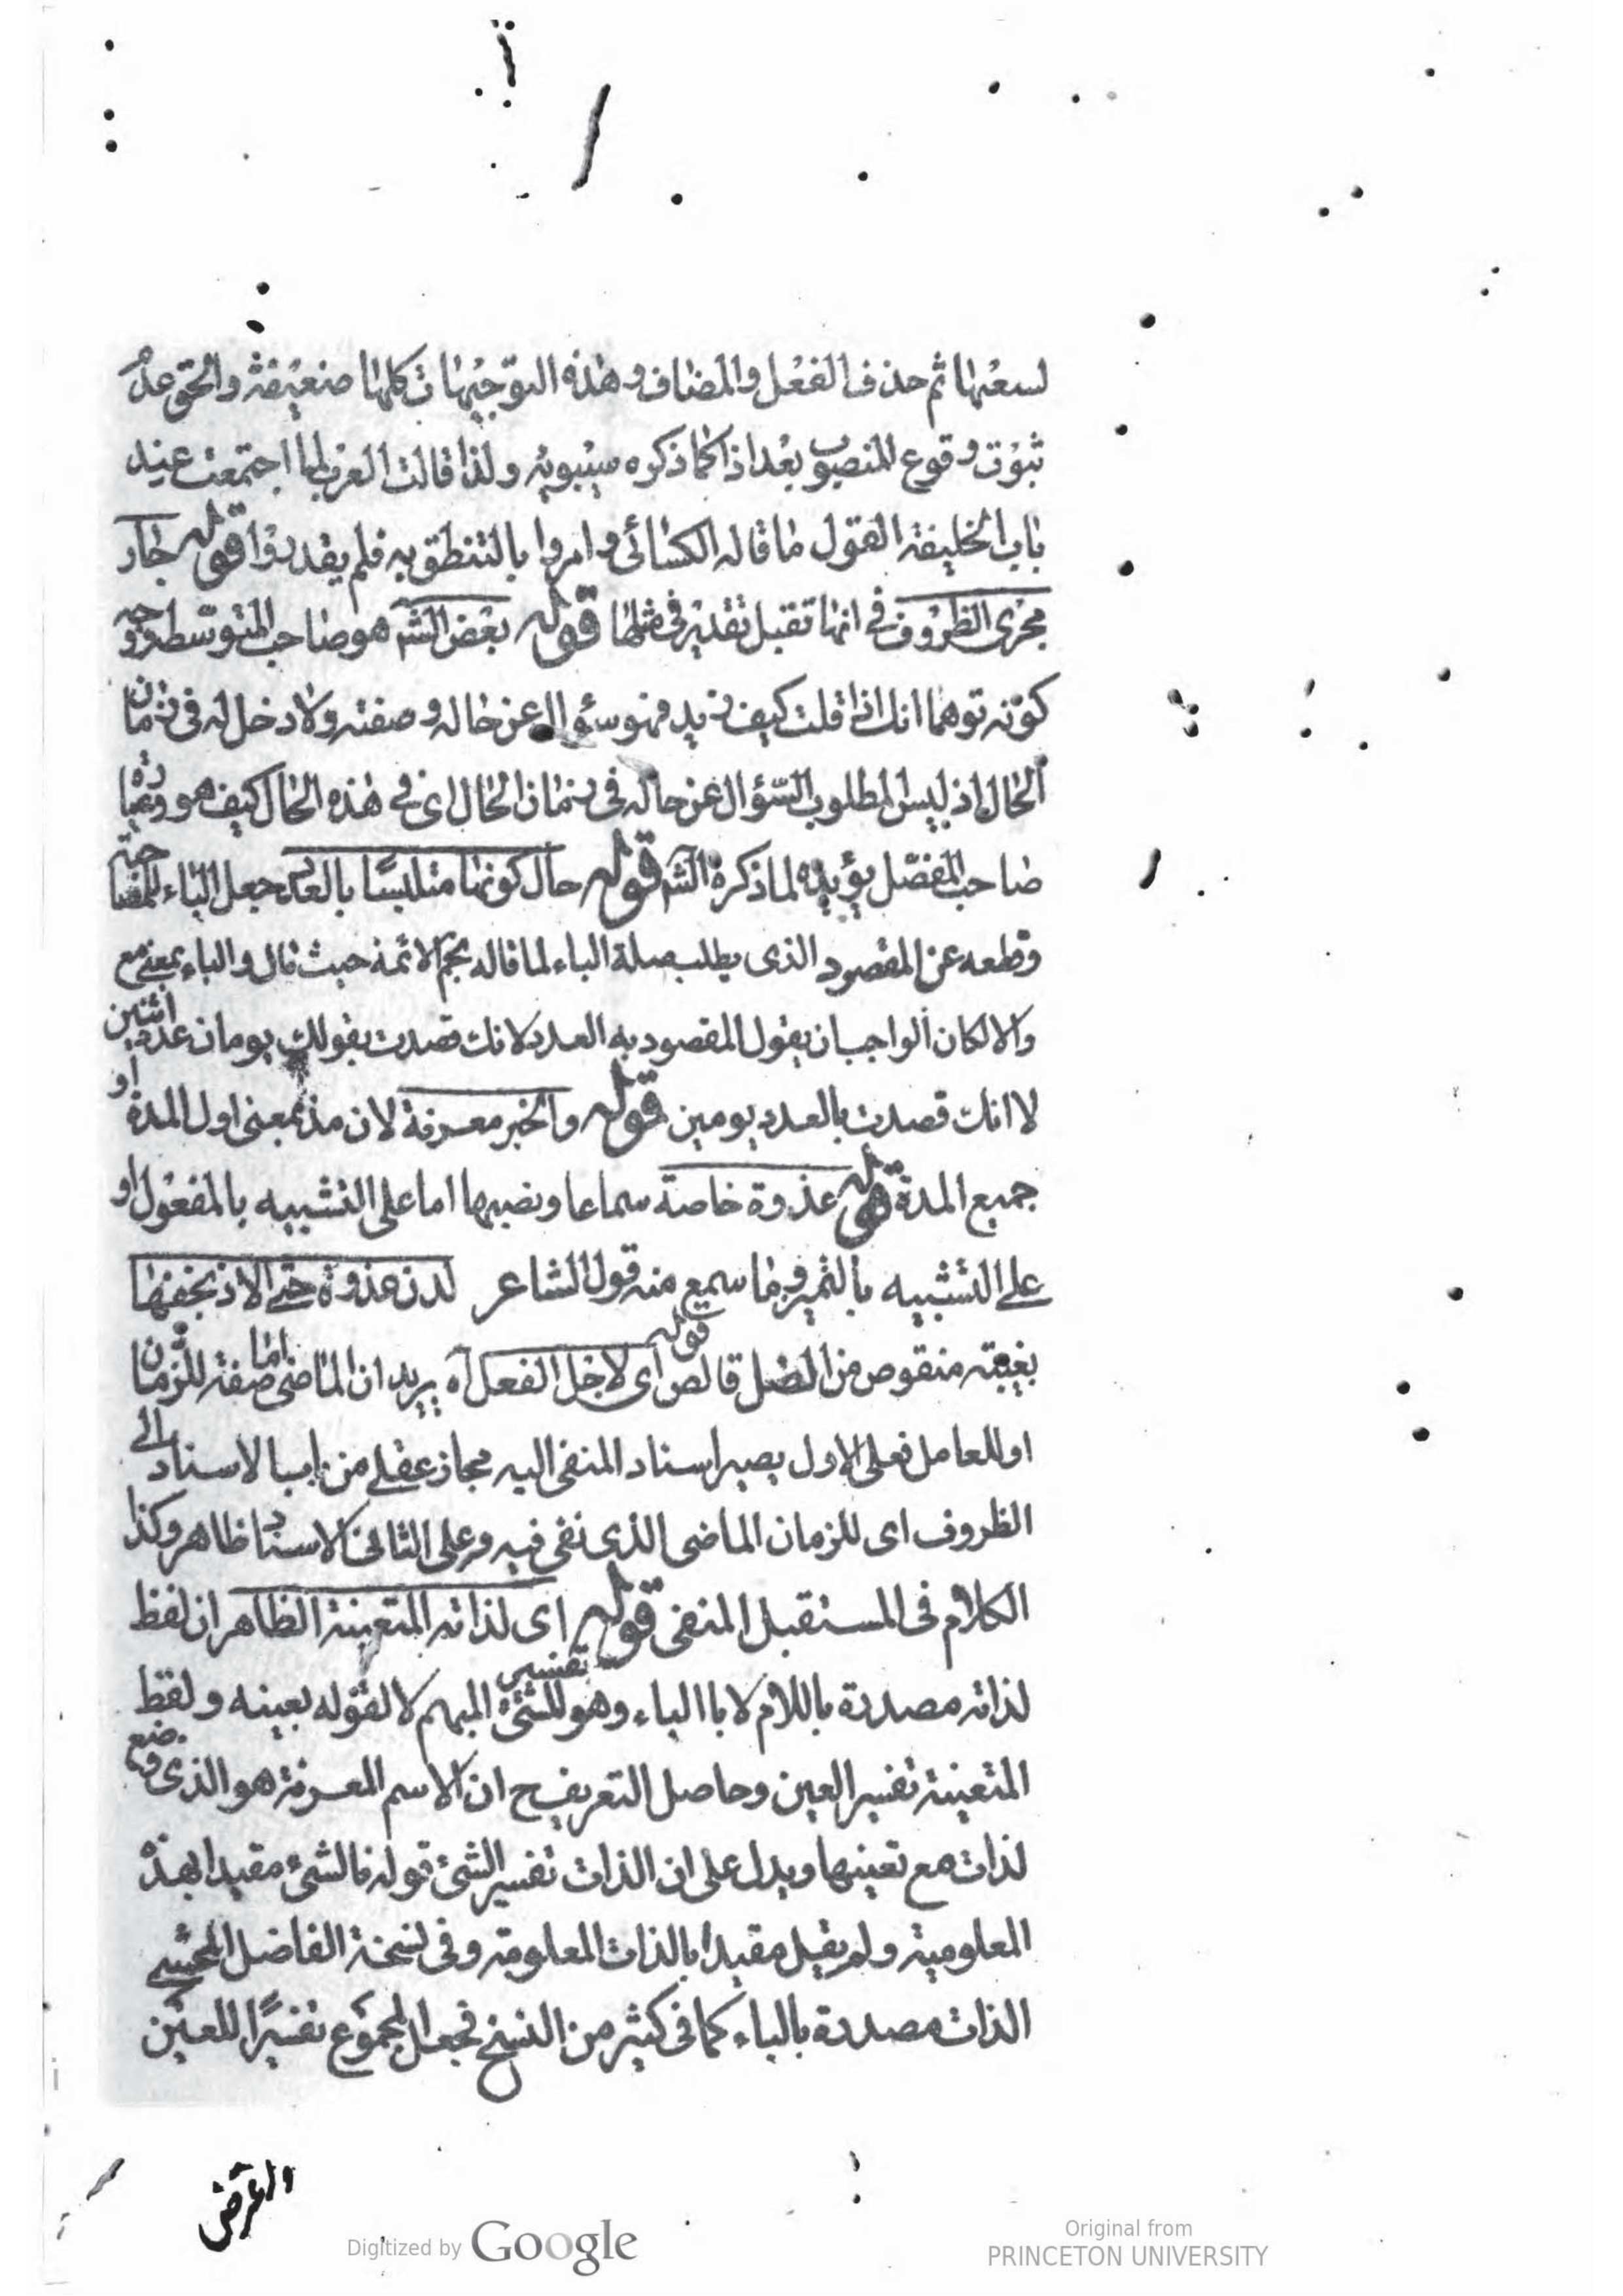 لسعتها ثم حذف الفعل والمضاف وهذه التوجيهات كلها ضعيفة والحق عدم
ثبوت وقوع المنصوب بعد اذا كما ذكره سيبويه ولذا قالت العرب لما اجتمعت عند
باب الخليفة القول ما قاله الكسائى وامروا بالتنطق به فلم يقدروا قوله جار
مجرى الظروف فى انها تقبل تقدير فى مثلها قوله بعض الش هو صاحب المتوسط ووجه
كونه توهما انك اذا قلت كيف زيد فهو سؤال عن حاله وصفته ولا دخل له فى زمان
الحال اذ ليس المطلوب السؤال عن حاله فى زمان الحال اى فى هذه الحال كيف هو
صاحب المفصل يؤيده لما ذكره الش قوله حال كونها متلبسا بالعدد جعل الباء للمصاحبة
وقطعه عن المقصود الذى يطلب صلة الباء لما قاله نجم الائمة حيث قال والباء بمعنى مع
والا لكان الواجب ان يقول المقصود به العدد لانك قصدت بقولك يومان عدد اثنين
لا انك قصدت بالعدد يومين قوله والخبر معرفة لان مذ بمعنى اول المدة او
جميع المدة قوله غذوة خاصة سماعا ونصبها اما على التشبيه بالمفعول او
على التشبيه بالتميز ومما سمع منه قول الشاعر لدن غذوة حتى الاذ بخفها
بغيته منقوص من الضل قالص قوله اى لاجل الفعل آه يريد ان الماضى اما صفة للزمان
او للعامل فعلى الاول يصير اسناد المنفى اليه مجاز عقلى من باب الاسناد الى
الظروف اى للزمان الماضى الذى نفى فيه وعلى الثانى الاسناد ظاهر وكذا
الكلام فى المستقبل المنفى قوله اى لذاته المتعينة الظاهر ان لفظ
لذاته مصدرة باللام لا باالباء وهو تفسير للشئ المبهم لا لقوله بعينه ولفظ
المتعينة تفسير العين وحاصل التعريف ح ان الاسم المعرفة هو الذى وضع
لذات مع تعينها ويدل على ان الذات تفسير الشئ قوله فالشئ مقيدا بهذه
المعلومية ولم يقيل مقيدا بالذات المعلومة وفى نسخة الفاضل المحشى
الذات مصدرة بالباء كما فى كثير من النسخ فجعل المجموع تفسيرًا للعين
Digitized by Google
Original from
PRINCETON UNIVERSITY